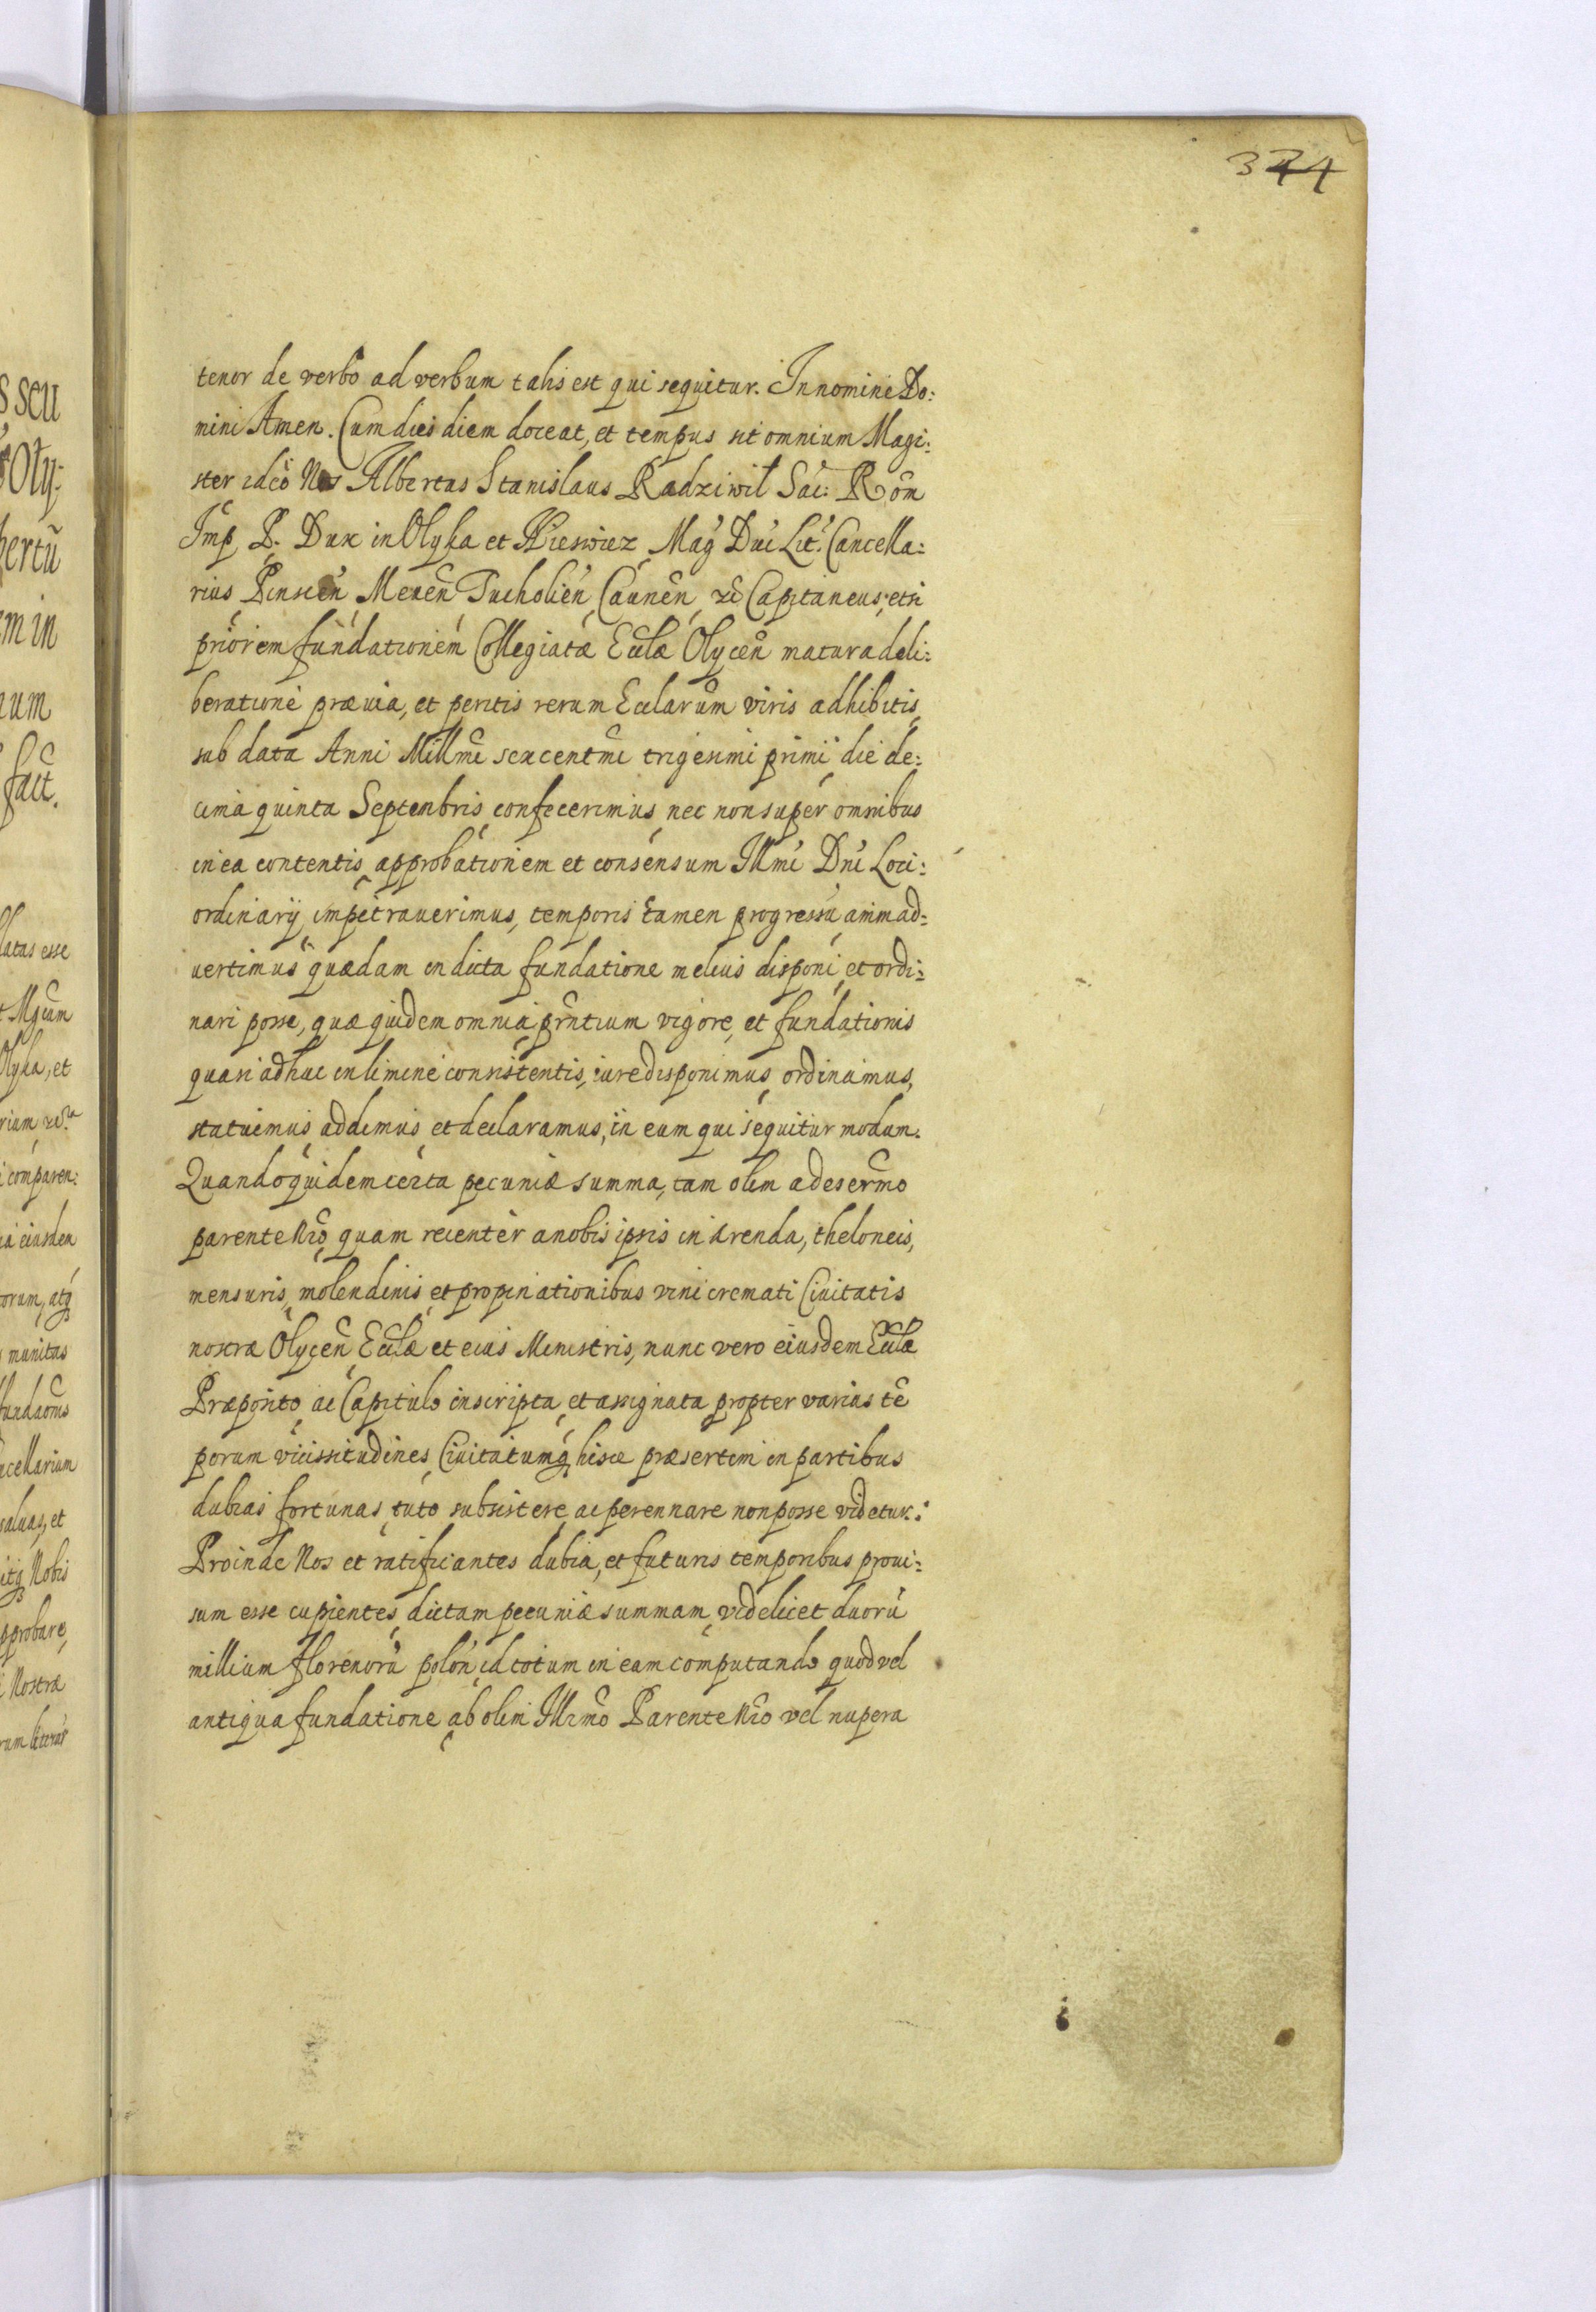 344
tenor de verbo ad verbum talis est qui sequitur. In nomine Do:
mini Amen. Cum dies diem doceat, et tempus sit omnium Magi:
ster ideo Nos Albertus Stanislaus Radziwil Sac: Rom̃
Imp P. Dux in Olyka et Nieswiez Mag Duc Lit. Cancella:
rius Pinscen̄ Meuen̄ Tucholien̄ Caunen̄ Capitaneus, etsi
priorem fundationem Collegiatæ Eccłæ Olycen̄ matura deli:
beratione præuia, et peritis rerum Ecclarum viris adhibitis,
sub data Anni Millm̄i sexcentm̄i trigesimi primi die de:
cima quinta Septembris confecerimus, nec non super omnibus
in ea contentis approbationem et consensum Illmi Dni Loci:
ordinarij impetrauerimus, temporis tamen progressu, animad:
uertimus quædam in dicta fundatione melius disponi, et ordi:
nari posse, quæ quidem omnia prn̄tium vigore, et fundationis
quasi adhuc in limine consistentis, iure disponimus, ordinamus,
statuimus, addimus et declaramus, in eum qui sequitur modum.
Quandoquidem certa pecuniæ summa, tam olim a desermo
parente Nr̄o, quam recenter a nobis ipsis in arenda, theloneis,
mensuris, molendinis, et propinationibus vini cremati Ciuitatis
nostræ Olycen̄ Eccłæ et eius Ministris, nunc vero eiusdem Eccłæ
Præposito, ac Capitulo inscripta, et assignata propter varias tē
porum vicissitudines, Ciuitatumq hisce præsertim in partibus
dubias fortunas, tuto subsistere, ac perennare non posse videtur.:
Proinde Nos et ratificantes dubia, et futuris temporibus proui:
sum esse cupientes, dictam pecuniæ summam, videlicet duorū
millium florenorū polon̄, id totum in eam computando quod vel
antiqua fundatione, ab olim Illrmo Parente Nr̄o vel nupera